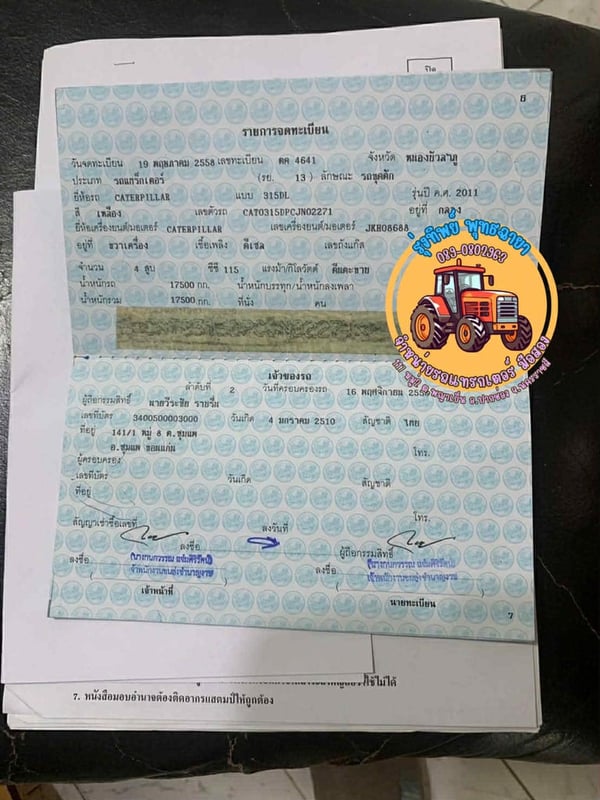 ปิด
6
รายการจดทะเบียน
วันจดทะเบียน 19 พฤษภาคม 2558 เลขทะเบียน ตค 4641 จังหวัด หนองบัวลำภู
ประเภท รถแทร็กเตอร์ (รย. 13) ลักษณะ รถขุดตัก
ยี่ห้อรถ CATERPILLAR แบบ 315DL รุ่นปี ค.ศ. 2011
สี เหลือง เลขตัวรถ CAT0315DPCJN02271 อยู่ที่
ยี่ห้อเครื่องยนต์/มอเตอร์ CATERPILLAR เลขเครื่องยนต์/มอเตอร์
อยู่ที่ ขวาเครื่อง เชื้อเพลิง ดีเซล เลขถังแก๊ส
จำนวน 4 สูบ ซีซี 115 แรงม้า/กิโลวัตต์
น้ำหนักรถ 17500 กก. น้ำหนักบรรทุก/น้ำหนักลงเพลา
น้ำหนักรวม 17500 กก. ที่นั่ง คน
สุ่ยทิพย์ พุทธฉายา
089-0802962
จำหน่ายรถแทรกเตอร์ มือสอง
เจ้าของรถ
ลำดับที่ 2 วันที่ครอบครองรถ 16 พฤศจิกายน
ผู้ถือกรรมสิทธิ์ นายวีระชัย
เลขที่บัตร 3400500003000 วันเกิด 4 มกราคม 2510 สัญชาติ ไทย
ที่อยู่ 141/1 หมู่ 8 ต.ชุมแพ
อ.ชุมแพ ขอนแก่น โทร.
ผู้ครอบครอง
เลขที่บัตร วันเกิด สัญชาติ
ที่อยู่ โทร.
สัญญาเช่าซื้อเลขที่ ลงวันที่
ลงชื่อ ผู้ถือกรรมสิทธิ์
ลงชื่อ ลงชื่อ
เจ้าพนักงานขนส่งชำนาญงาน เจ้าพนักงานขนส่งชำนาญงาน
เจ้าหน้าที่ นายทะเบียน
7
ใช้ไม่ได้
7. หนังสือมอบอำนาจต้องติดอากรแสตมป์ให้ถูกต้อง